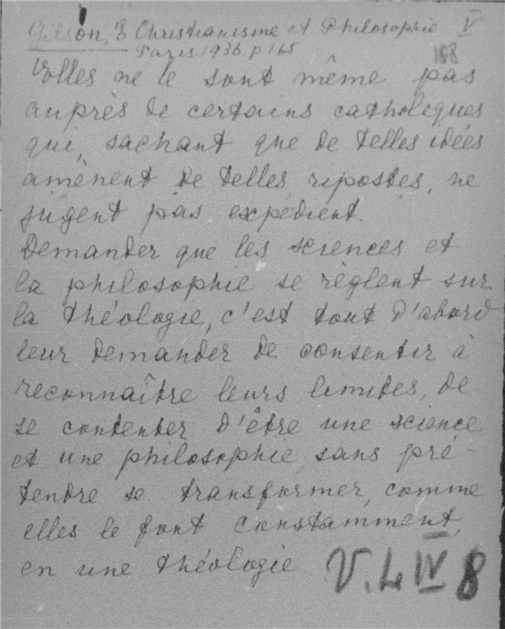 Gilson, E Christianisme et Philosophie V
Paris 1936 p 165
188
elles ne le sont même pas
auprès de certains catholiques
qui, sachant que de telles idées
amènent de telles ripostes, ne
jugent pas expédient.
Demander que les sciences et
la philosophie se règlent sur
la théologie, c'est tout d'abord
leur demander de consentir à
reconnaître leurs limites, de
se contenter d'être une science
et une philosophie, sans pré-
tendre se transformer, comme
elles le font constamment,
en une théologie
V. L IV 8